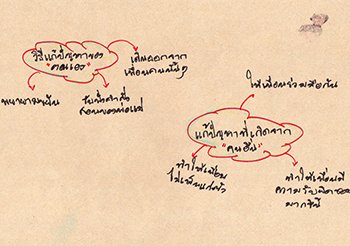 วิธีแก้ปัญหาของ
"ตนเอง"
เดินออกจาก
เพื่อนคนนั้นๆ
พยายามหมั่น
รับฟังคำสั่ง
สอนของพ่อแม่
แก้ปัญหาที่เกิดจาก
"คนอื่น"
ให้เพื่อนร่วมมือกัน
ทำให้เพื่อน
ไม่เห็นแก่ตัว
ทำให้เพื่อนมี
ความรับผิดชอบ
มากขึ้น